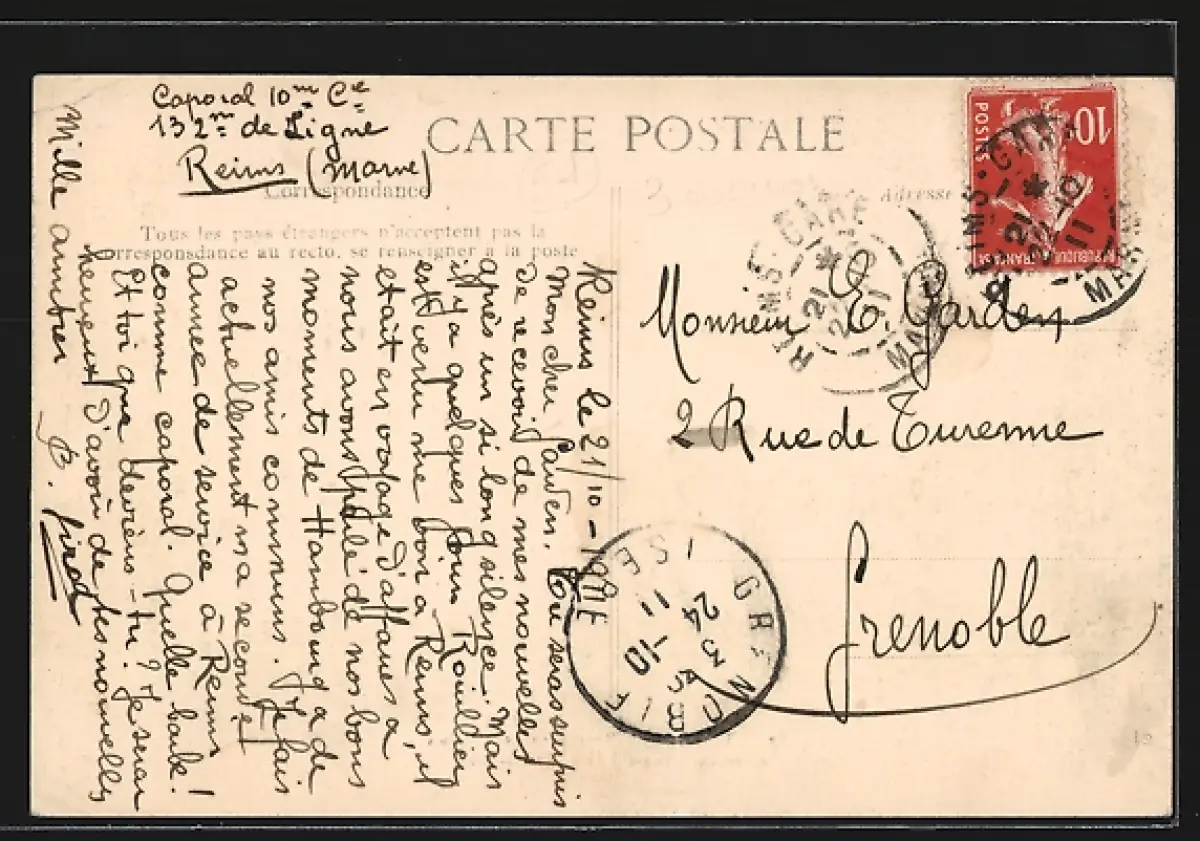 Caporal 10me Cie
132me de Ligne
Reims (Marne)
CARTE POSTALE
Correspondance
Adresse
Tous les pays étrangers n'acceptent pas la
correspondance au recto, se renseigner à la poste
Reims le 21/10 - 
Mon cher Garden. Tu seras surpris
de recevoir de mes nouvelles
après un si long silence. Mais
il y a quelques jours Rouillier
est venu me voir à Reims, il
était en voyage d'affaires &
nous avons parlé de nos bons
moments de Hambourg & de
nos amis communs. Je fais
actuellement ma seconde
année de service à Reims
comme caporal. Quelle barbe!
Et toi que deviens-tu? Je serai
heureux d'avoir de tes nouvelles
Mille amitiés
B.
Monsieur E. Garden
2 Rue de Turenne
Grenoble
10
POSTES
REPUBLIQUE FRANÇAISE
REIMS-GARE
21 * 
22-10
11
MARNE
REIMS-GARE
21 *
22-10
11
MARNE
GRENOBLE
3 24
-10
11
ISERE